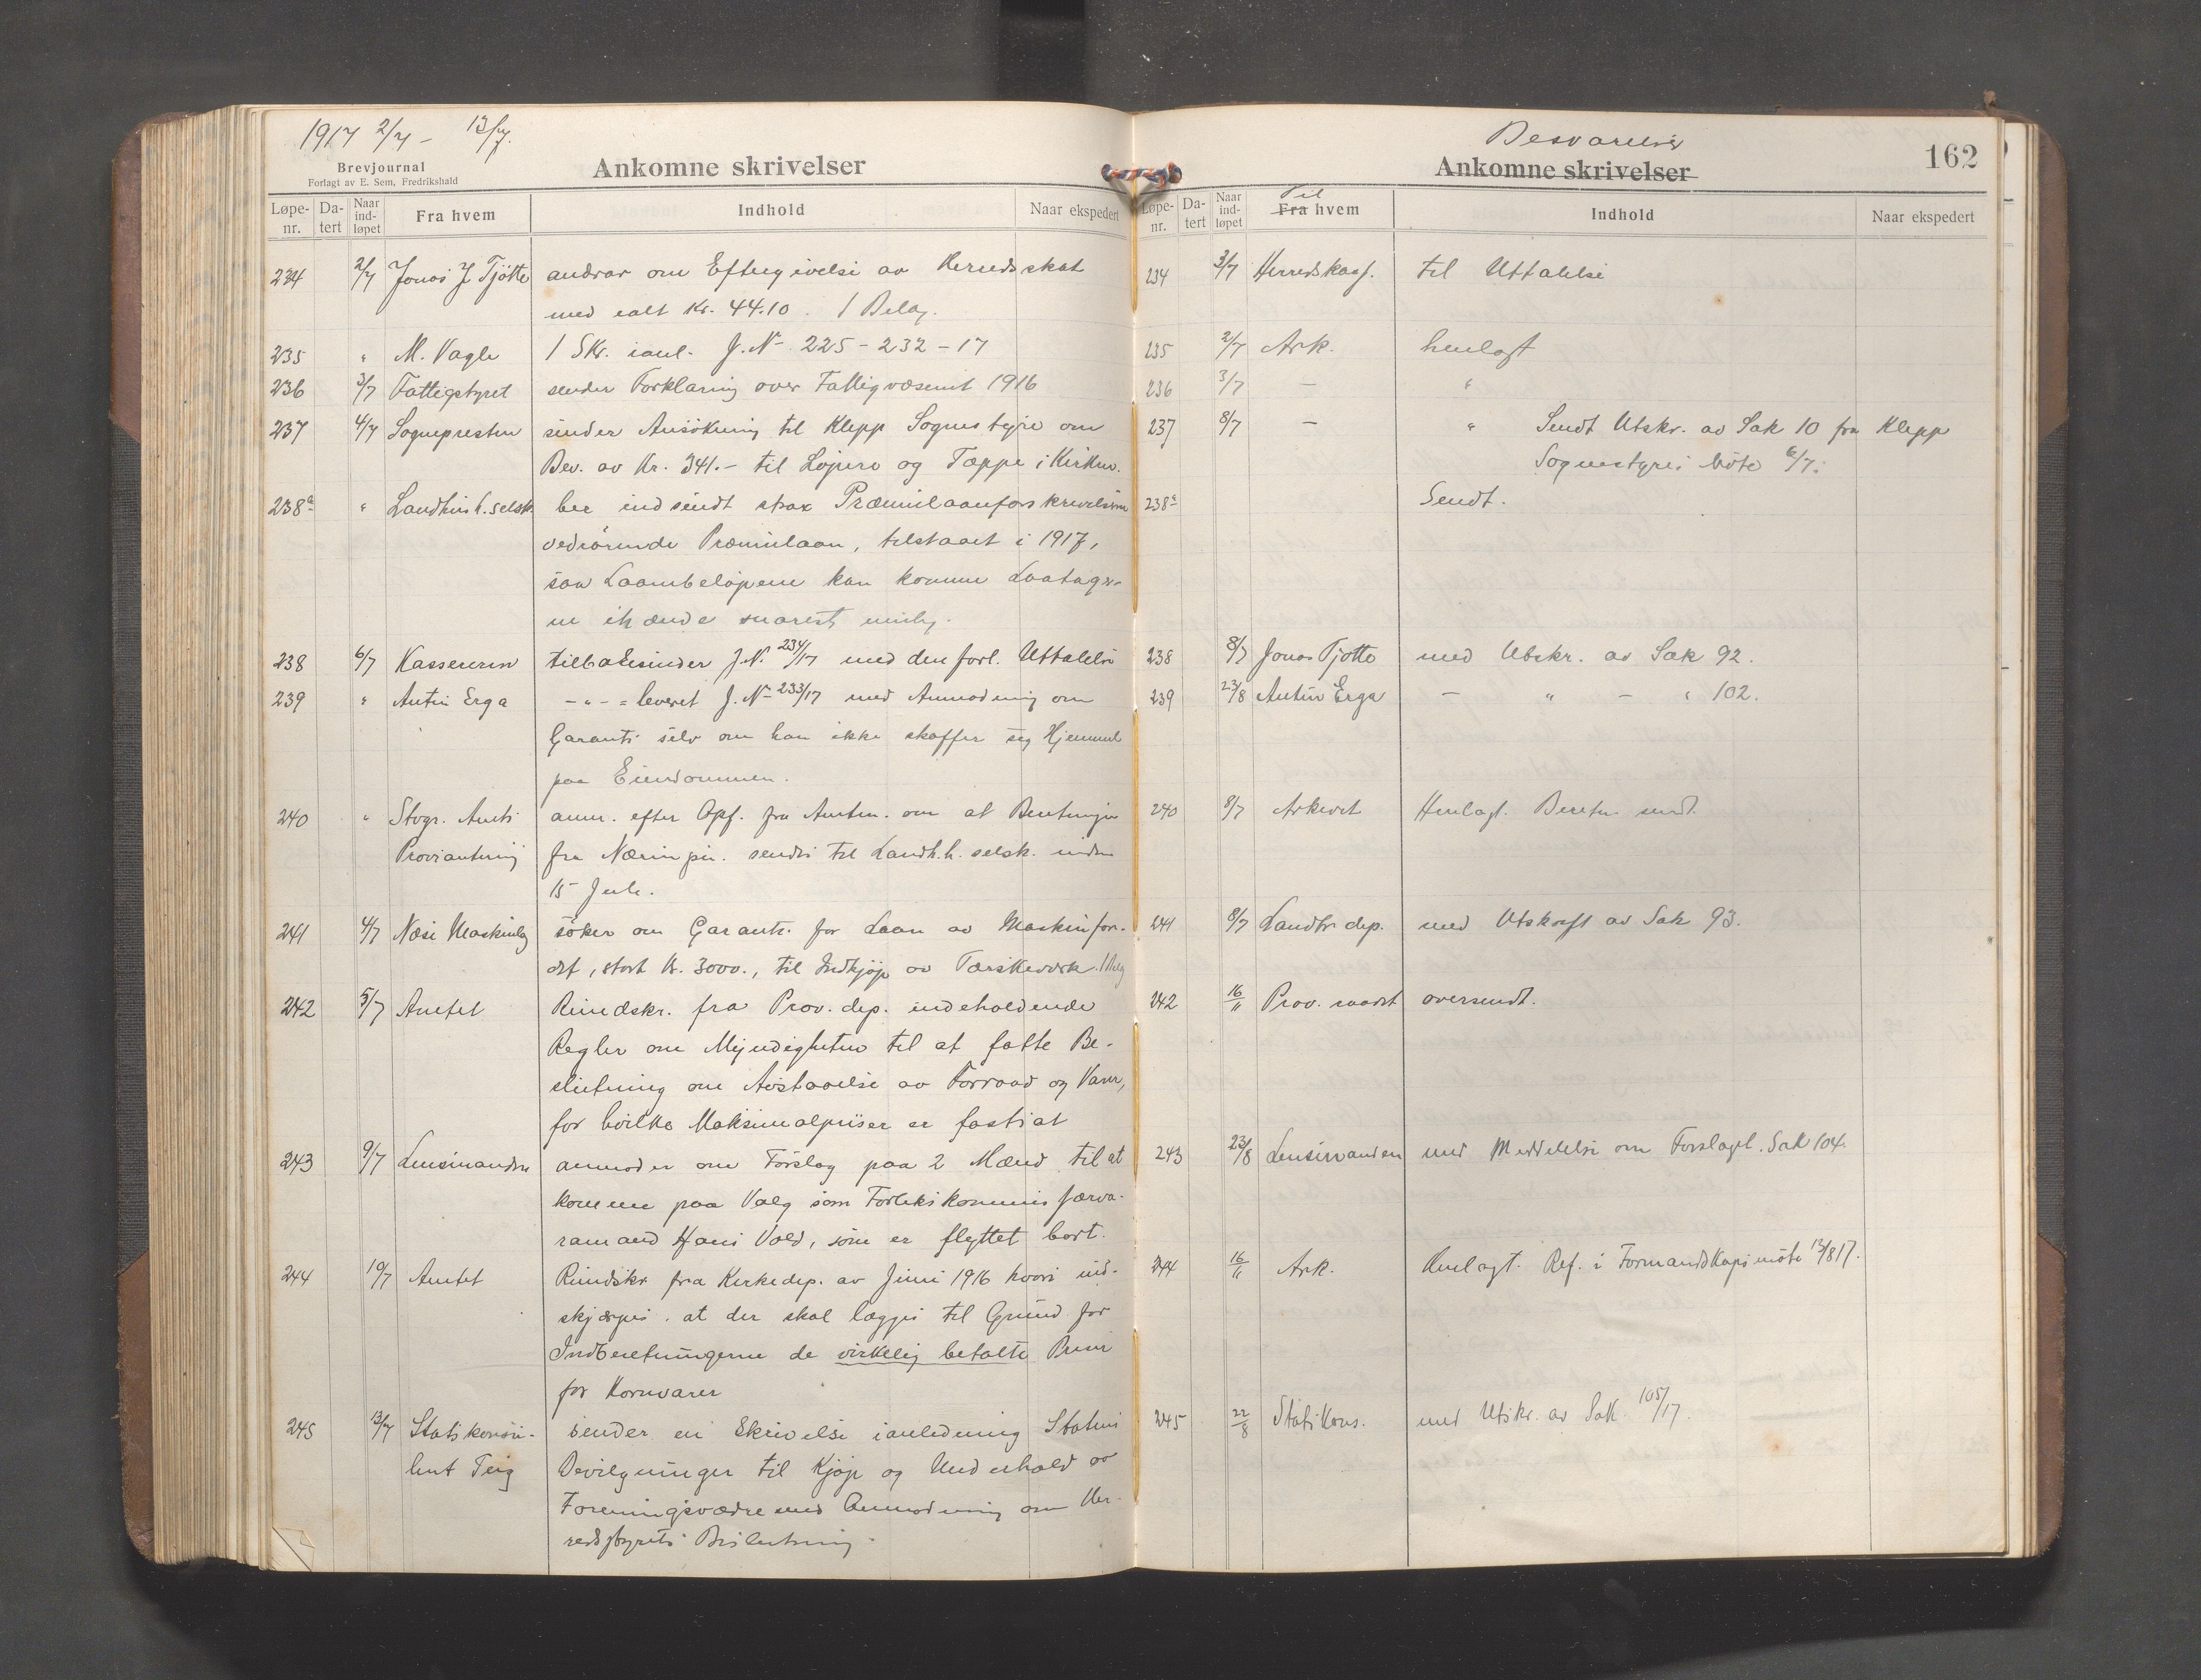 1917 2/7 - 13/7.
Brevjournal
Forlagt av E. Sem, Fredrikshald
Ankomne skrivelser
Løpe-nr. Da-tert Naar ind-løpet Fra hvem Indhold Naar ekspedert
234 2/7 Jonas J Tjøtte andrar om Eftergivelse av Herredsskat
med ialt Kr. 44.10. 1 Belag.
235 " M. Vagle 1 Skr. ianl. J.N. 225-232-17
236 3/7 Fattigstyret sender Forklaring over Fattigvæsenet 1916
237 4/7 Sognepresten sender Ansökning til Klepp Sognestyre om
Bev. av Kr. 341.- til Løpere og Tæppe i Kirken.
238a " Landhush.selsk. ber indsendt strax Præmielaanforskrivelserne
vedrörende Præmielaan, tilstaaet i 1917,
saa Laanebeløpene kan komme Laatager-
ne ihænde snarest mulig.
238 6/7 Kassereren tilbakesender J.N. 234/17 med den forl. Uttalelse
239 " Autin Erga - " - = leveret J.N. 233/17 med Anmodning om
Garanti selv om han ikke skaffer seg Hjemmel
paa Eiendommen.
240 " Stvgr. Amts anm. efter Opf. fra Amtm. om at Beretninger
Proviantering fra Nærin sendes til Landh.h. selsk. inden
15 Juli.
241 4/7 Næse Maskinlag söker om Garanti for Laan av Maskinfon-
det, stort Kr. 3000., til Indkjøp av Tærskeverk. 1 Belag
242 5/7 Amtet Rundskr. fra Prov. dep. indeholdende
Regler om Myndigheten til at fatte Be-
slutning om Avstaaelse av Forraad og Varer,
for hvilke Maksimalpriser er fastsat
243 9/7 Lensmanden anmoder om Forslag paa 2 Mænd til at
komme paa Valg som Forlikskommissær va-
ramand Hans Vold, som er flyttet bort.
244 10/7 Amtet Rundskr fra Kirkedep. av Juni 1916 hvori ind-
skjærpes at der skal lægges til Grund for
Indberetningerne de virkelig betalte Priser
for Kornvarer
245 13/7 Statskonsu- sender en Skrivelse ianledning Statens
lent Teig Bevilgninger til Kjøp og Underhold av
Foreningsvædre med Anmodning om Her-
redsstyrets Beslutning.
Besvarelser
Ankomne skrivelser
162
Løpe-nr. Da-tert Naar ind-løpet Til Fra hvem Indhold Naar ekspedert
234 3/7 Herredskass. til Uttalelse
235 2/7 Ark. henlagt
236 3/7 - "
237 8/7 - " Sendt Utskr. av Sak 10 fra Klepp
Sognestyres Möte 6/7.
238a Sendt.
238 8/7 Jonas Tjøtte med Utskr. av Sak 92.
239 23/8 Autin Erga - " - " 102.
240 8/7 Arkivet Henlagt. Beretn. sendt.
241 8/7 Landbr. dep. med Utskrift av Sak 93.
242 16/11 Prov. raadet oversendt.
243 23/8 Lensmanden med Meddelelse om Forslaget. Sak 104.
244 16/11 Ark. Henlagt. Ref. i Formandskapsmöte 13/8 17.
245 22/8 Statskons. med Utskr. av Sak. 105/17.